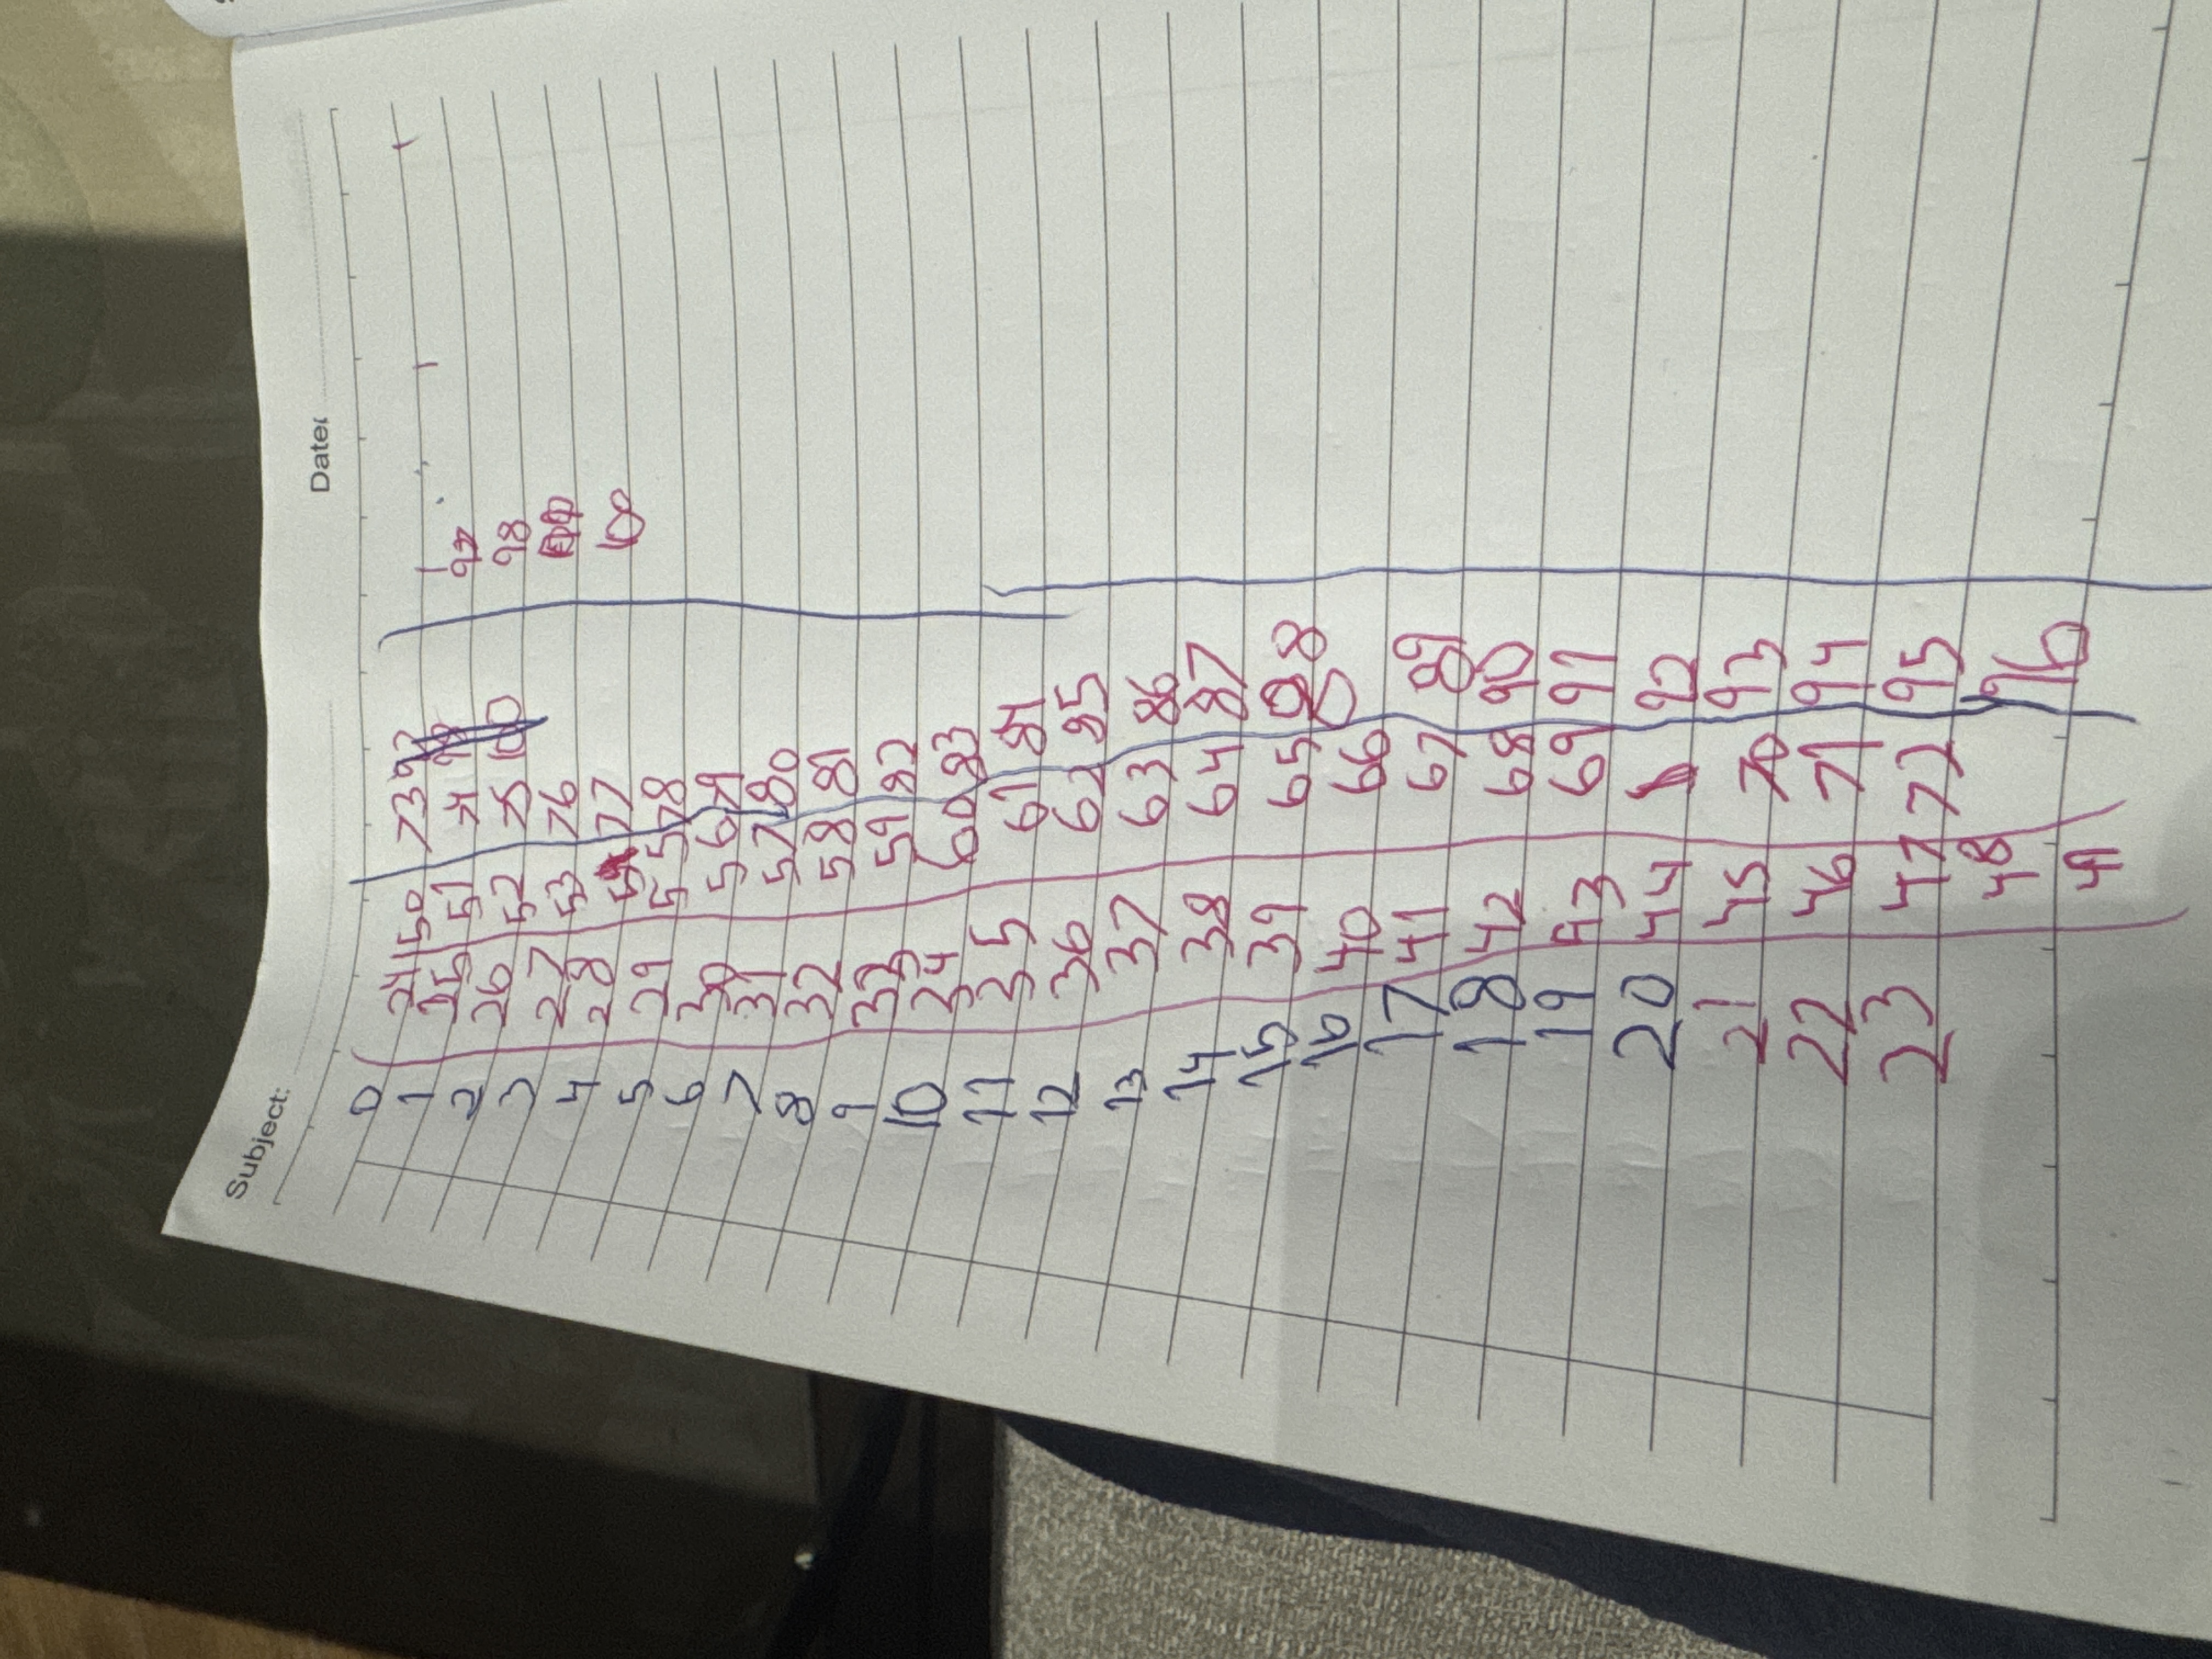 Subject:
Date:
0
1
2
3
4
5
6
7
8
9
10
11
12
13
14
15
16
17
18
19
20
21
22
23
24
25
26
27
28
29
30
31
32
33
34
35
36
37
38
39
40
41
42
43
44
45
46
47
48
49
50
51
52
53
55
56
57
58
59
60
61
62
63
64
65
66
67
68
69
70
71
72
73
74
75
76
77
78
79
80
81
82
83
84
85
86
87
88
89
90
91
92
93
94
95
96
97
98
100